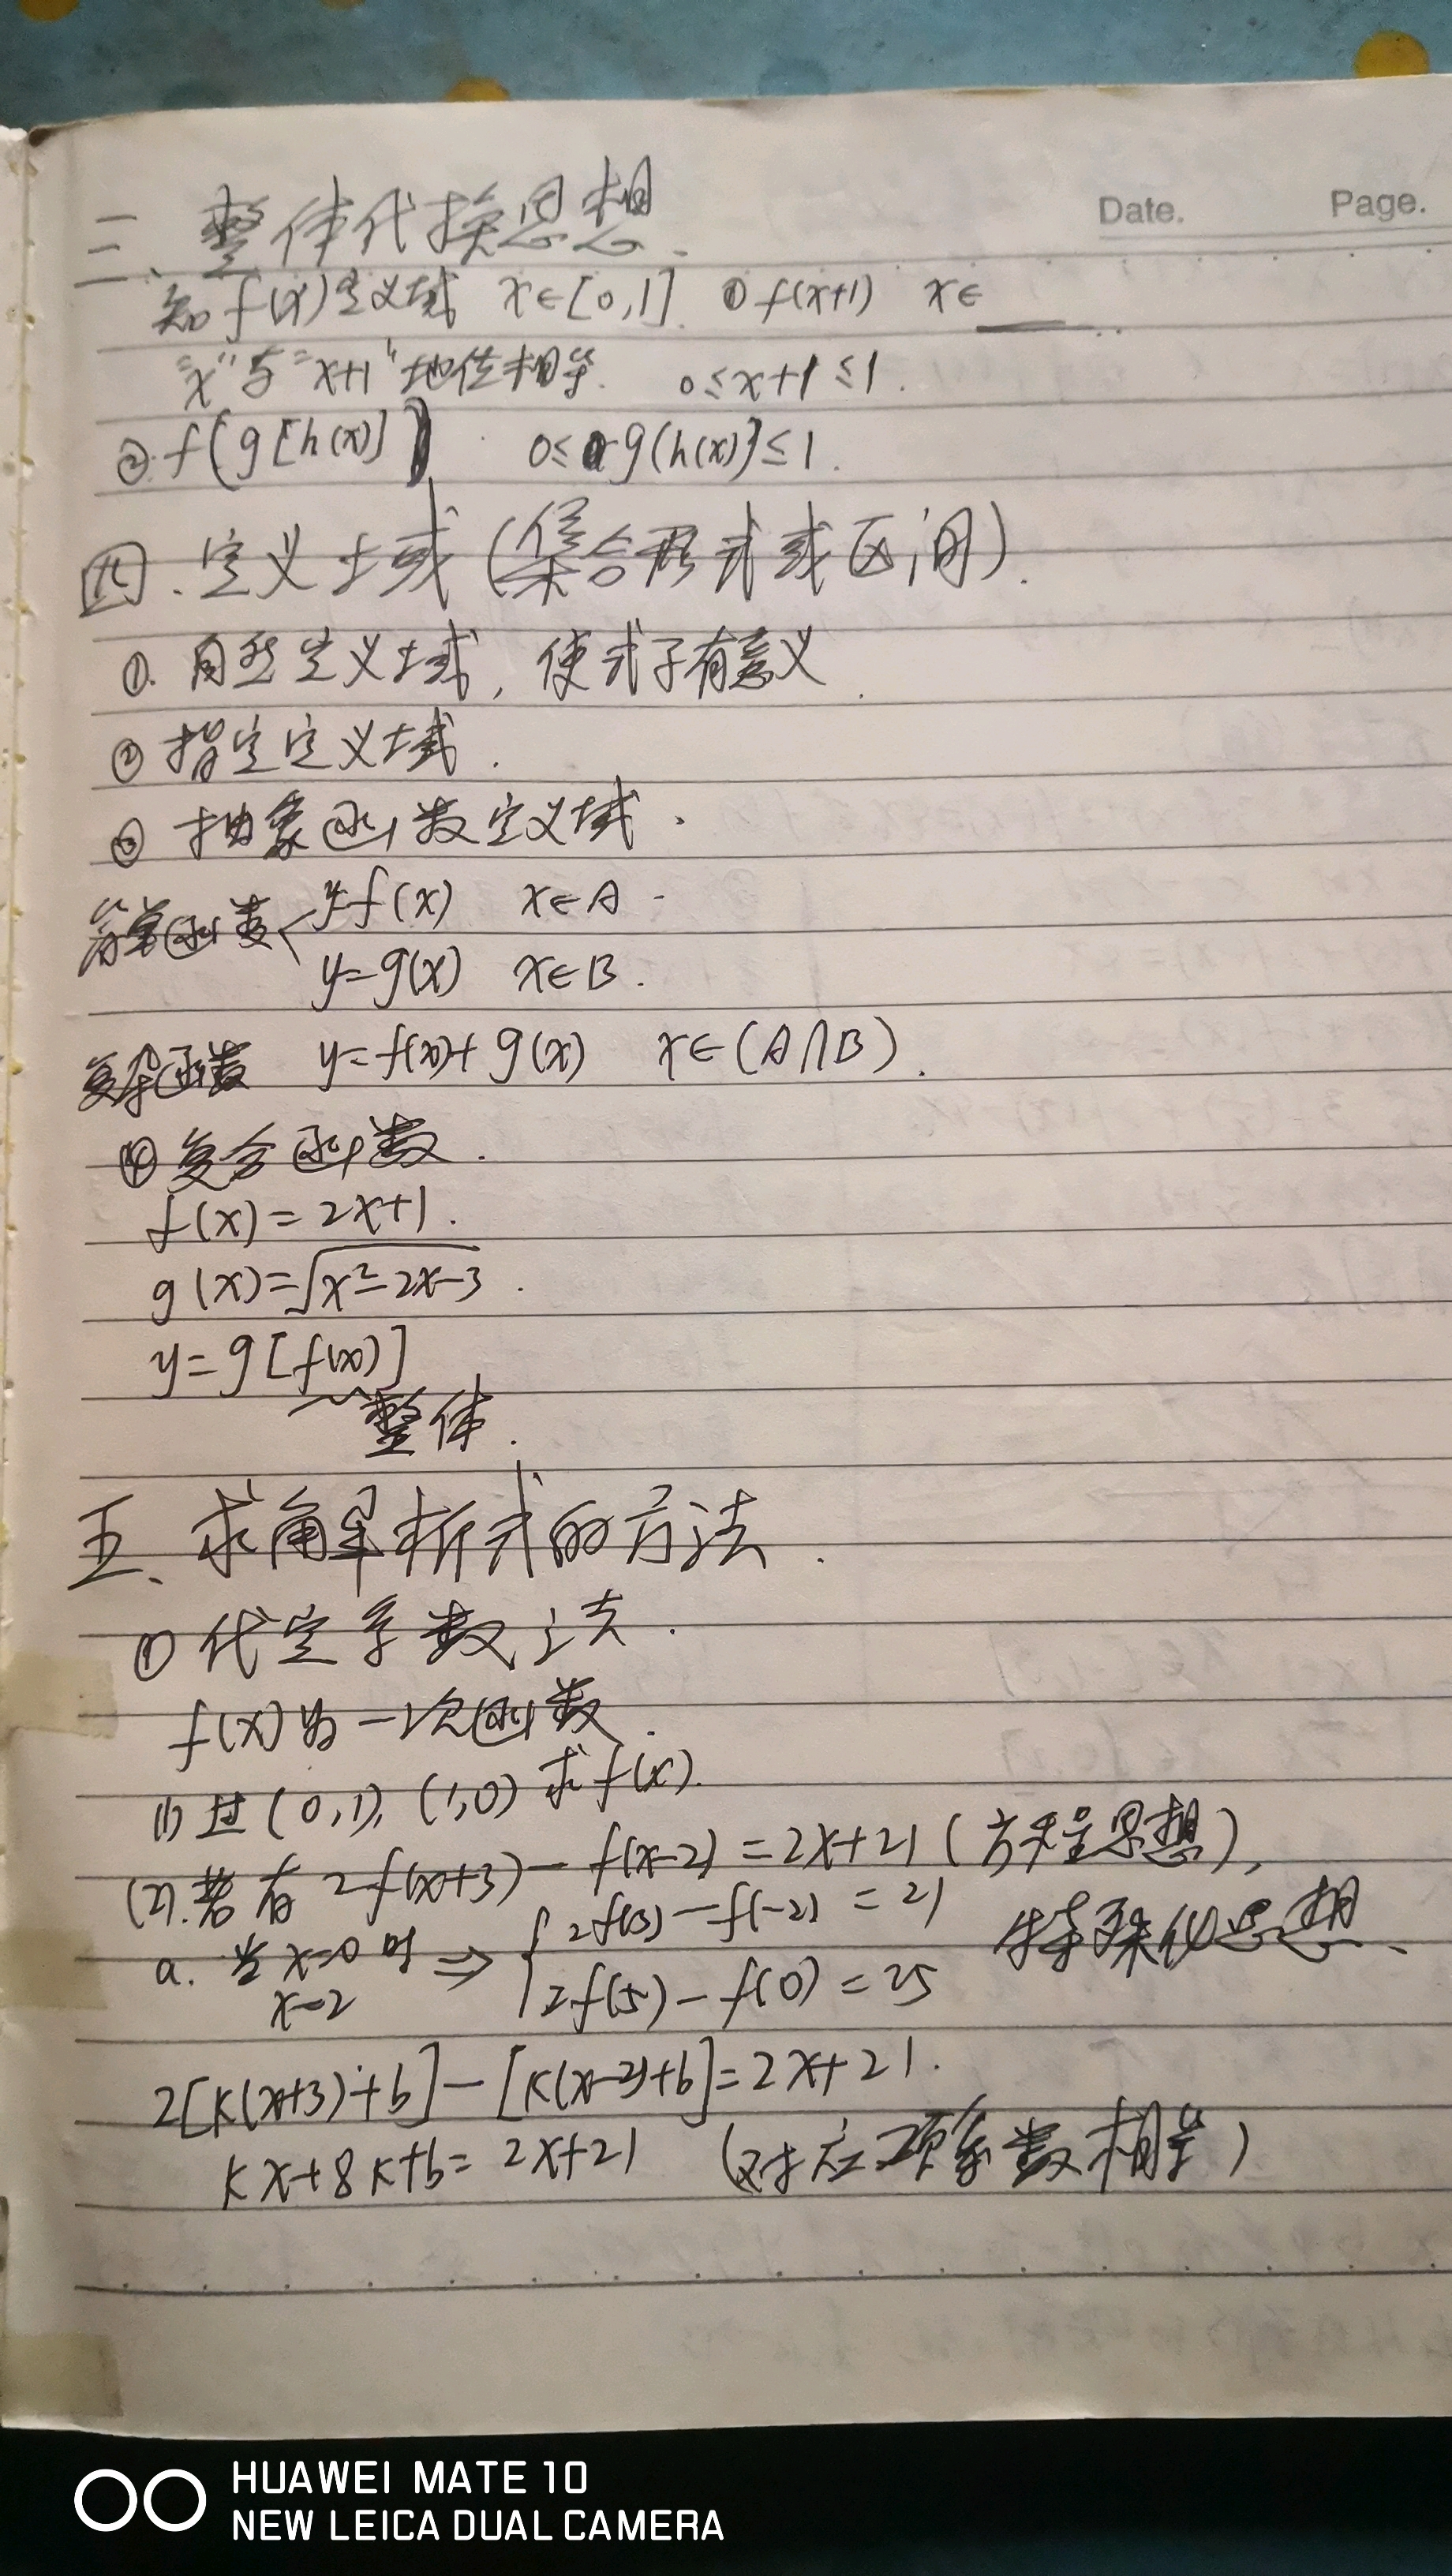 Date. Page.
三、整体代换思想.
知f(x)定义域 x∈[0,1]. ①f(x+1) x∈____.
"x"与"x+1"地位相等. 0≤x+1≤1.
②.f(g[h(x)]) 0≤g(h(x)]≤1.
四.定义域(集合形式或区间).
①.自然定义域,使式子有意义.
②指定定义域.
③抽象函数定义域.
简单函数< y=f(x) x∈A
y=g(x) x∈B.
复杂函数 y=f(x)+g(x) x∈(A∩B).
④复合函数.
f(x)=2x+1.
g(x)=√x²-2x-3.
y=g[f(x)]
整体.
五、求解析式的方法.
①代定系数法.
f(x)为一次函数.
(1)过(0,1),(1,0)求f(x).
(2).若有2f(x+3)-f(x-2)=2x+21(方程思想),
a.当x=0时 ⇒ { 2f(3)-f(-2)=21 特殊化思想、
x=2 2f(5)-f(0)=25
2[k(x+3)+b]-[k(x-2)+b]=2x+21.
kx+8k+b=2x+21 (对应项系数相等)
HUAWEI MATE 10
NEW LEICA DUAL CAMERA